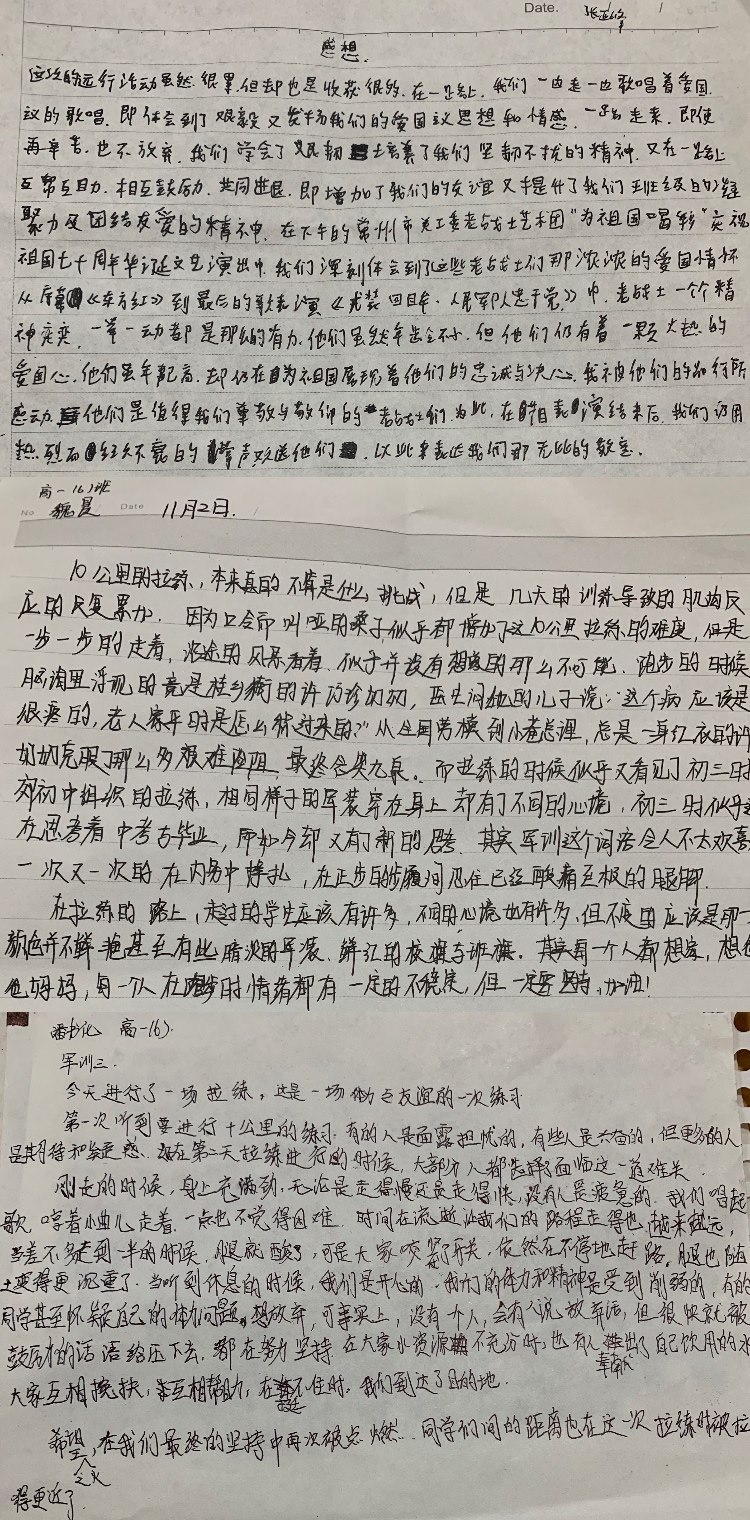 Date.
张亚修
感想
这次的远行活动虽然很累,但却也是收获很多.在一路上.我们一边走一边歌唱着爱国
议的歌唱.即体会到了艰毅又发扬我们的爱国议思想和情感.一路走来.即使
再辛苦.也不放弃.我们学会了艰韧培养了我们坚韧不拔的精神.又在一路上
互帮互助.相互鼓励.共同进退.即增加了我们的友谊又提升了我们班级的凝
聚力及团结友爱的精神.在下午的常州市关工委老战士艺术团"为祖国喝彩"庆祝
祖国七十周年华诞文艺演出中.我们深刻体会到了这些老战士们那浓浓的爱国情怀
从序幕《东方红》到最后的表演《戎装回目年·人民军队忠于党》中.老战士一个个精
神奕奕.一举一动都是那么的有力.他们虽然年岁不小.但他们仍有着一颗火热的
爱国心.他们虽年龄高.却仍在为祖国展现着他们的忠诚与决心.我被他们的品行所
感动.他们是值得我们尊敬与敬仰的老战士们.为此,在节目表演结束后.我们仍用
热烈而经久不衰的掌声欢送他们.以此来表达我们那无比的敬意.
高一16)班
No 魏晨 Date 11月2日.
10公里的拉练,本来真的不算是什么挑战,但是几天的训练导致的肌肉反
应的反复累加.因为口令而叫哑的嗓子似乎都增加了这10公里拉练的难度,但是
一步一步的走着,沿途的风景看着.似乎并没有想象的那么不可能.跑步的时候
脑海里浮现的竟是桂乡衡的许巧珍奶奶,医生问她的儿子说:"这个病应该是
很疼的,老人家平时是怎么熬过来的?"从全国劳模到小巷总理,总是一身红衣的许
奶奶克服了那么多艰难险阻.最终含笑九泉.而拉练的时候似乎又看见了初三时
郊初中组织的拉练,相同样子的军装穿在身上却有了不同的心境,初三时似乎
在思考着中考与毕业,而如今却又有了新的思考.其实军训这个词语令人不太欢喜
一次又一次的在内务中挣扎,在正步的步履间忍住已经酸痛至极的腿脚.
在拉练的路上,走过的学生应该有许多,不同的心境也有许多,但不变的应该是那一
颜色并不鲜艳甚至有些暗淡的军装、鲜红的校旗与班旗.其实每一个人都想家,想
他妈妈,每一个人在跑步时情绪都有一定的不稳定,但一定要坚持,加油!
潘书化 高一16)
军训三.
今天进行了一场拉练,这是一场体力与友谊的一次练习
第一次听到要进行十公里的练习.有的人是面露担忧的,有些人是兴奋的,但更多的人
是期待和疑惑.在第二天拉练进行的时候,大部分人都选择面临这一道难关.
刚走的时候,身上充满劲,无论是走得慢还是走得快,没有人是疲惫的.我们唱起
歌,哼着小曲儿走着.一点也不觉得困难.时间在流逝让我们的路程走得也越来越远,
当差不多走到一半的时候.腿就酸了,可是大家咬紧牙关,依然在不停地赶路.腿也随
之变得更沉重了.当听到休息的时候,我们是开心的.我们的体力和精神是受到削弱的.有的
同学甚至怀疑自己的体力问题,想放弃,可事实上,没有一个人,会有人说放弃话,但很快就被
鼓励的话语给压下去,都在努力坚持.在大家水资源不充分时,也有人奉献出了自己饮用的水
大家互相搀扶,互相帮助,在不住时,我们到达了目的地.
希望之火,在我们最终的坚持中再次被点燃.同学们间的距离也在这一次拉练时被拉
得更近了.